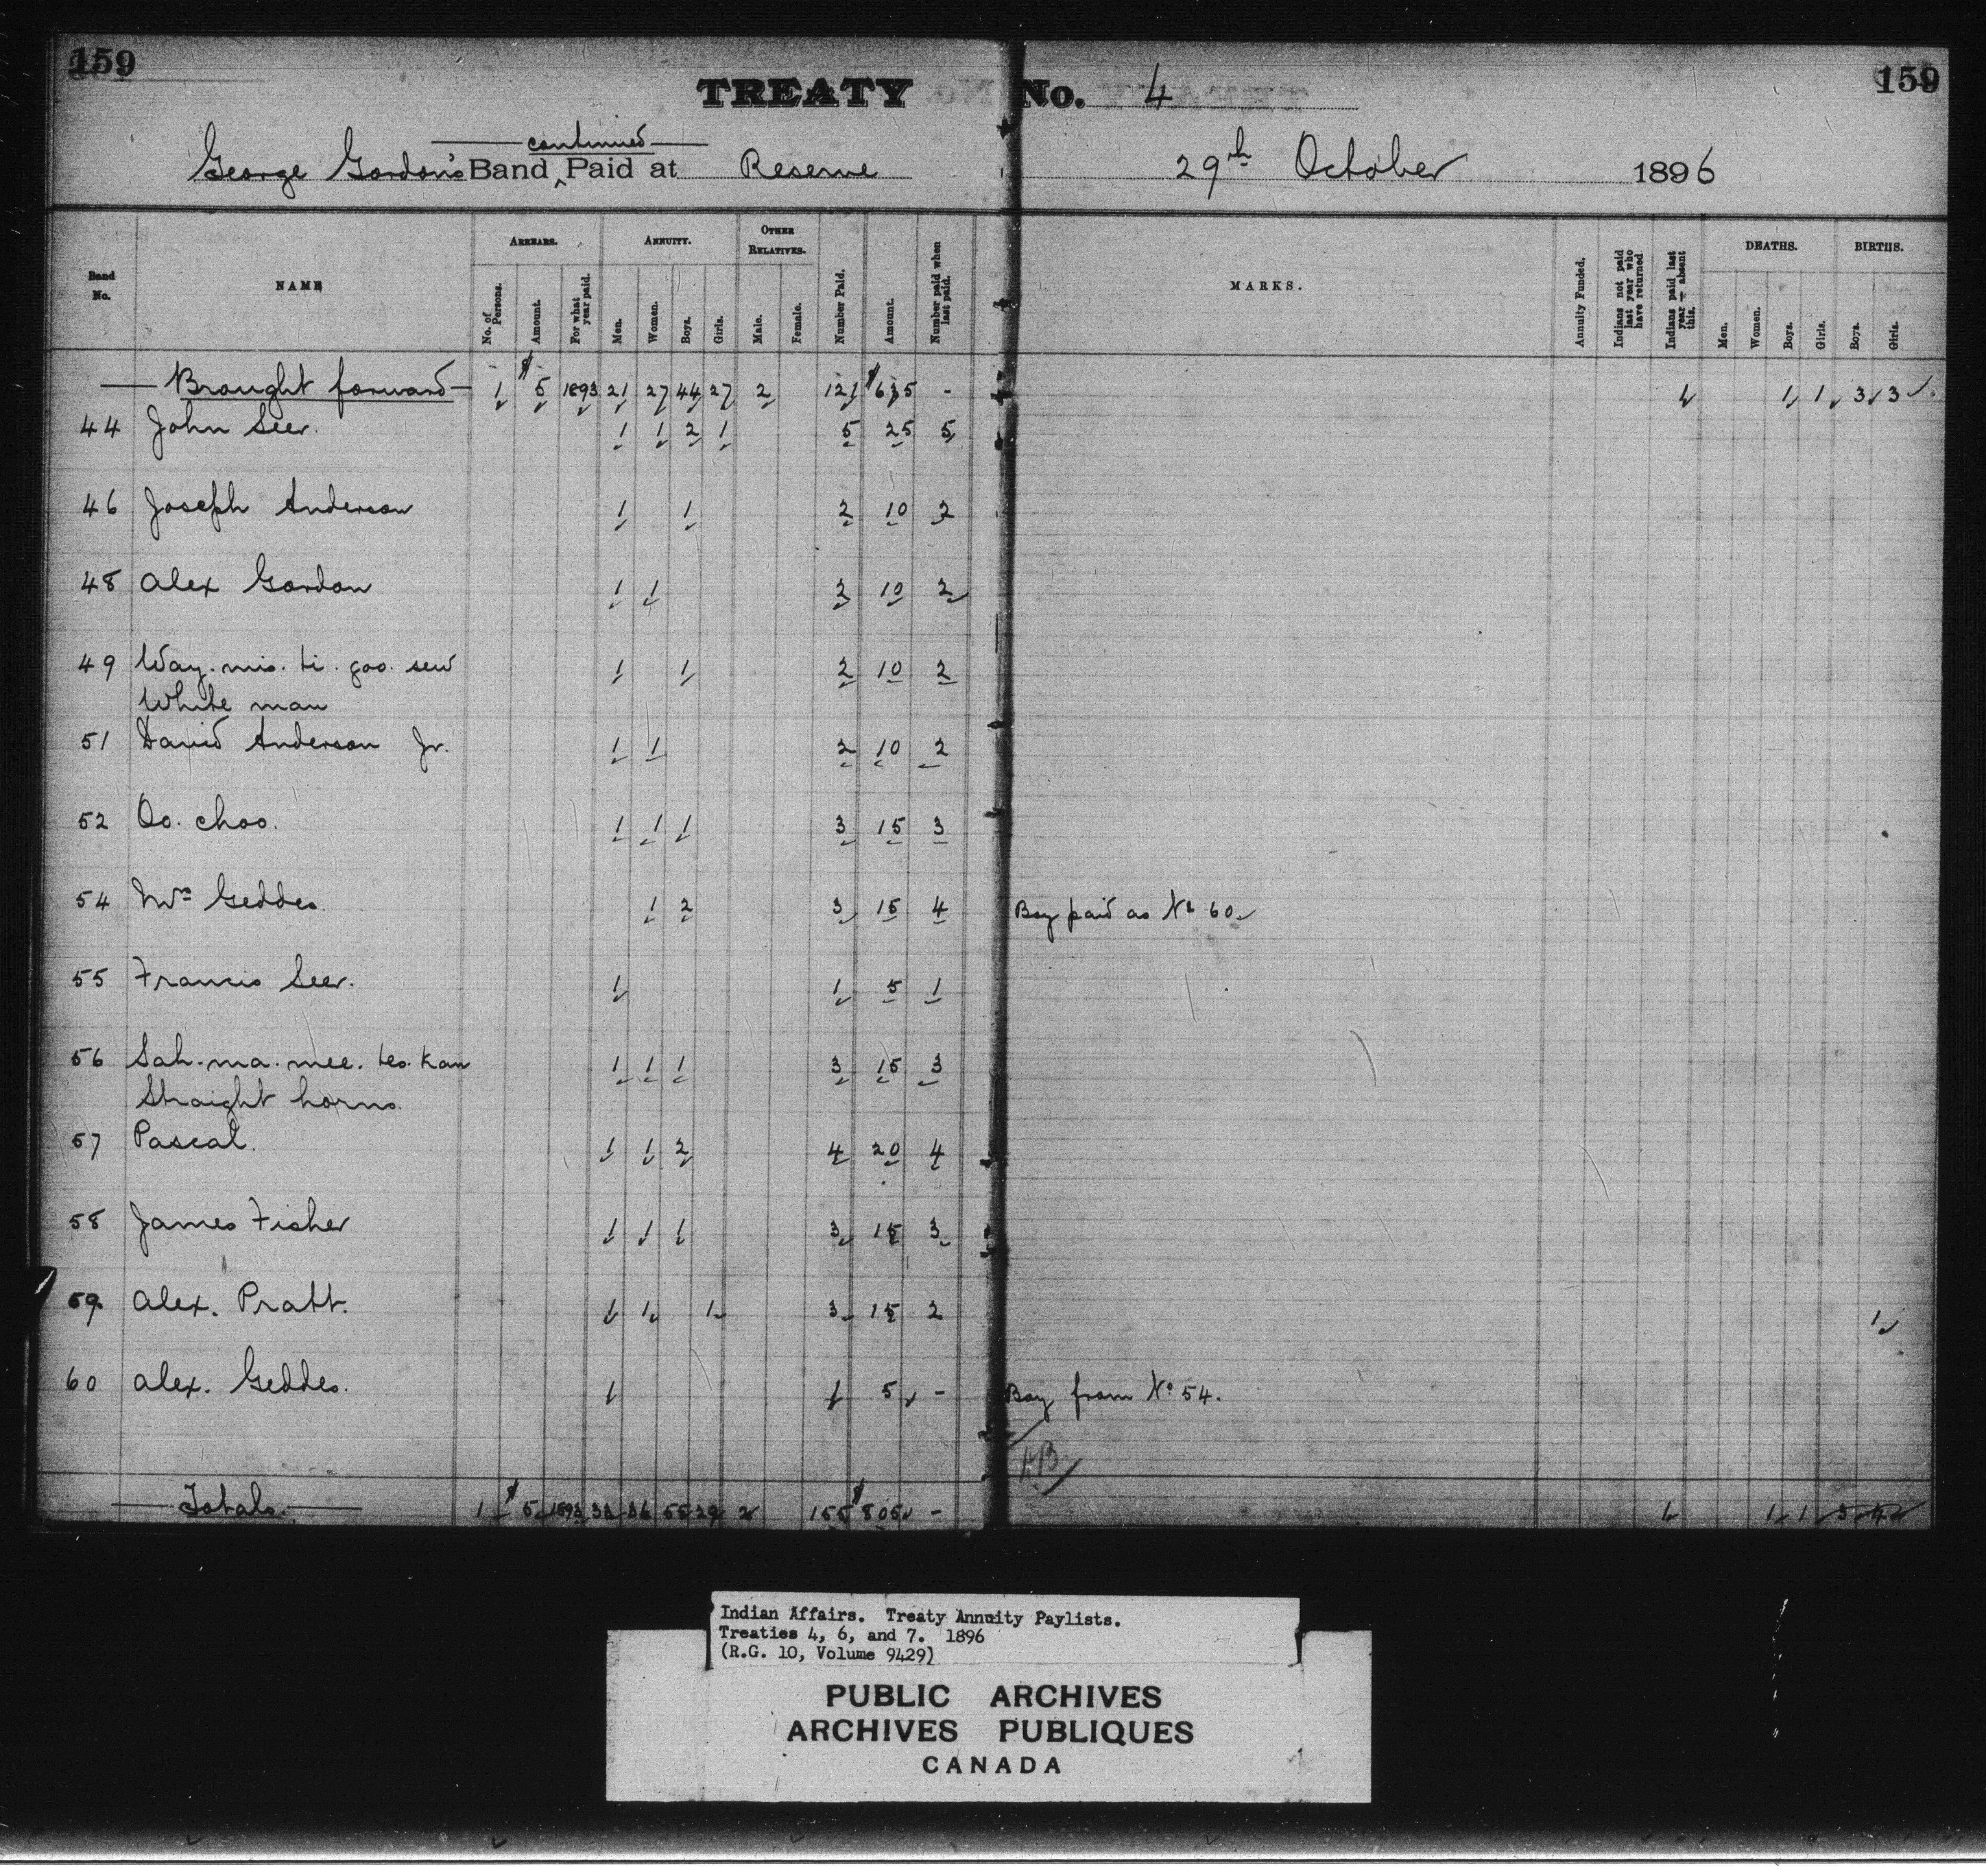 159
TREATY No. 4
159
continued
George Gordon's Band ^ Paid at Reserve 29th October 1896
Band No. NAME ARREARS. No. of Persons. Amount. For what year paid. ANNUITY. Men. Women. Boys. Girls. OTHER RELATIVES. Male. Female. Number Paid. Amount. Number paid when last paid. MARKS. Annuity Funded. Indians not paid last year who have returned Indians paid last year — absent this. DEATHS. Men. Women. Boys. Girls. BIRTHS. Boys. Girls.
Brought forward 1 $5 1893 21 27 44 27 2 121 $635 - 1 1 3 3
44 John Seer. 1 1 2 1 5 25 5
46 Joseph Anderson 1 1 2 10 2
48 Alex Gordon 1 1 2 10 2
49 Way. mis. ti. goo. sew 1 1 2 10 2
White man
51 David Anderson Jr. 1 1 2 10 2
52 Oo. choo. 1 1 1 3 15 3
54 Mrs Geddes. 1 2 3 15 4 Boy paid as No 60
55 Francis Seer. 1 1 5 1
56 Sah. ma. mee. tes. kan 1 1 1 3 15 3
Straight horns.
57 Pascal. 1 1 2 4 20 4
58 James Fisher 1 1 1 3 15 3
59 Alex. Pratt. 1 1 1 3 15 2 1
60 Alex. Geddes. 1 1 5 - Boy from No 54.
Totals. 1 $5 1893 36 29 2 155 $805 - 1 1
Indian Affairs. Treaty Annuity Paylists.
Treaties 4, 6, and 7. 1896
(R.G. 10, Volume 9429)
PUBLIC ARCHIVES
ARCHIVES PUBLIQUES
CANADA